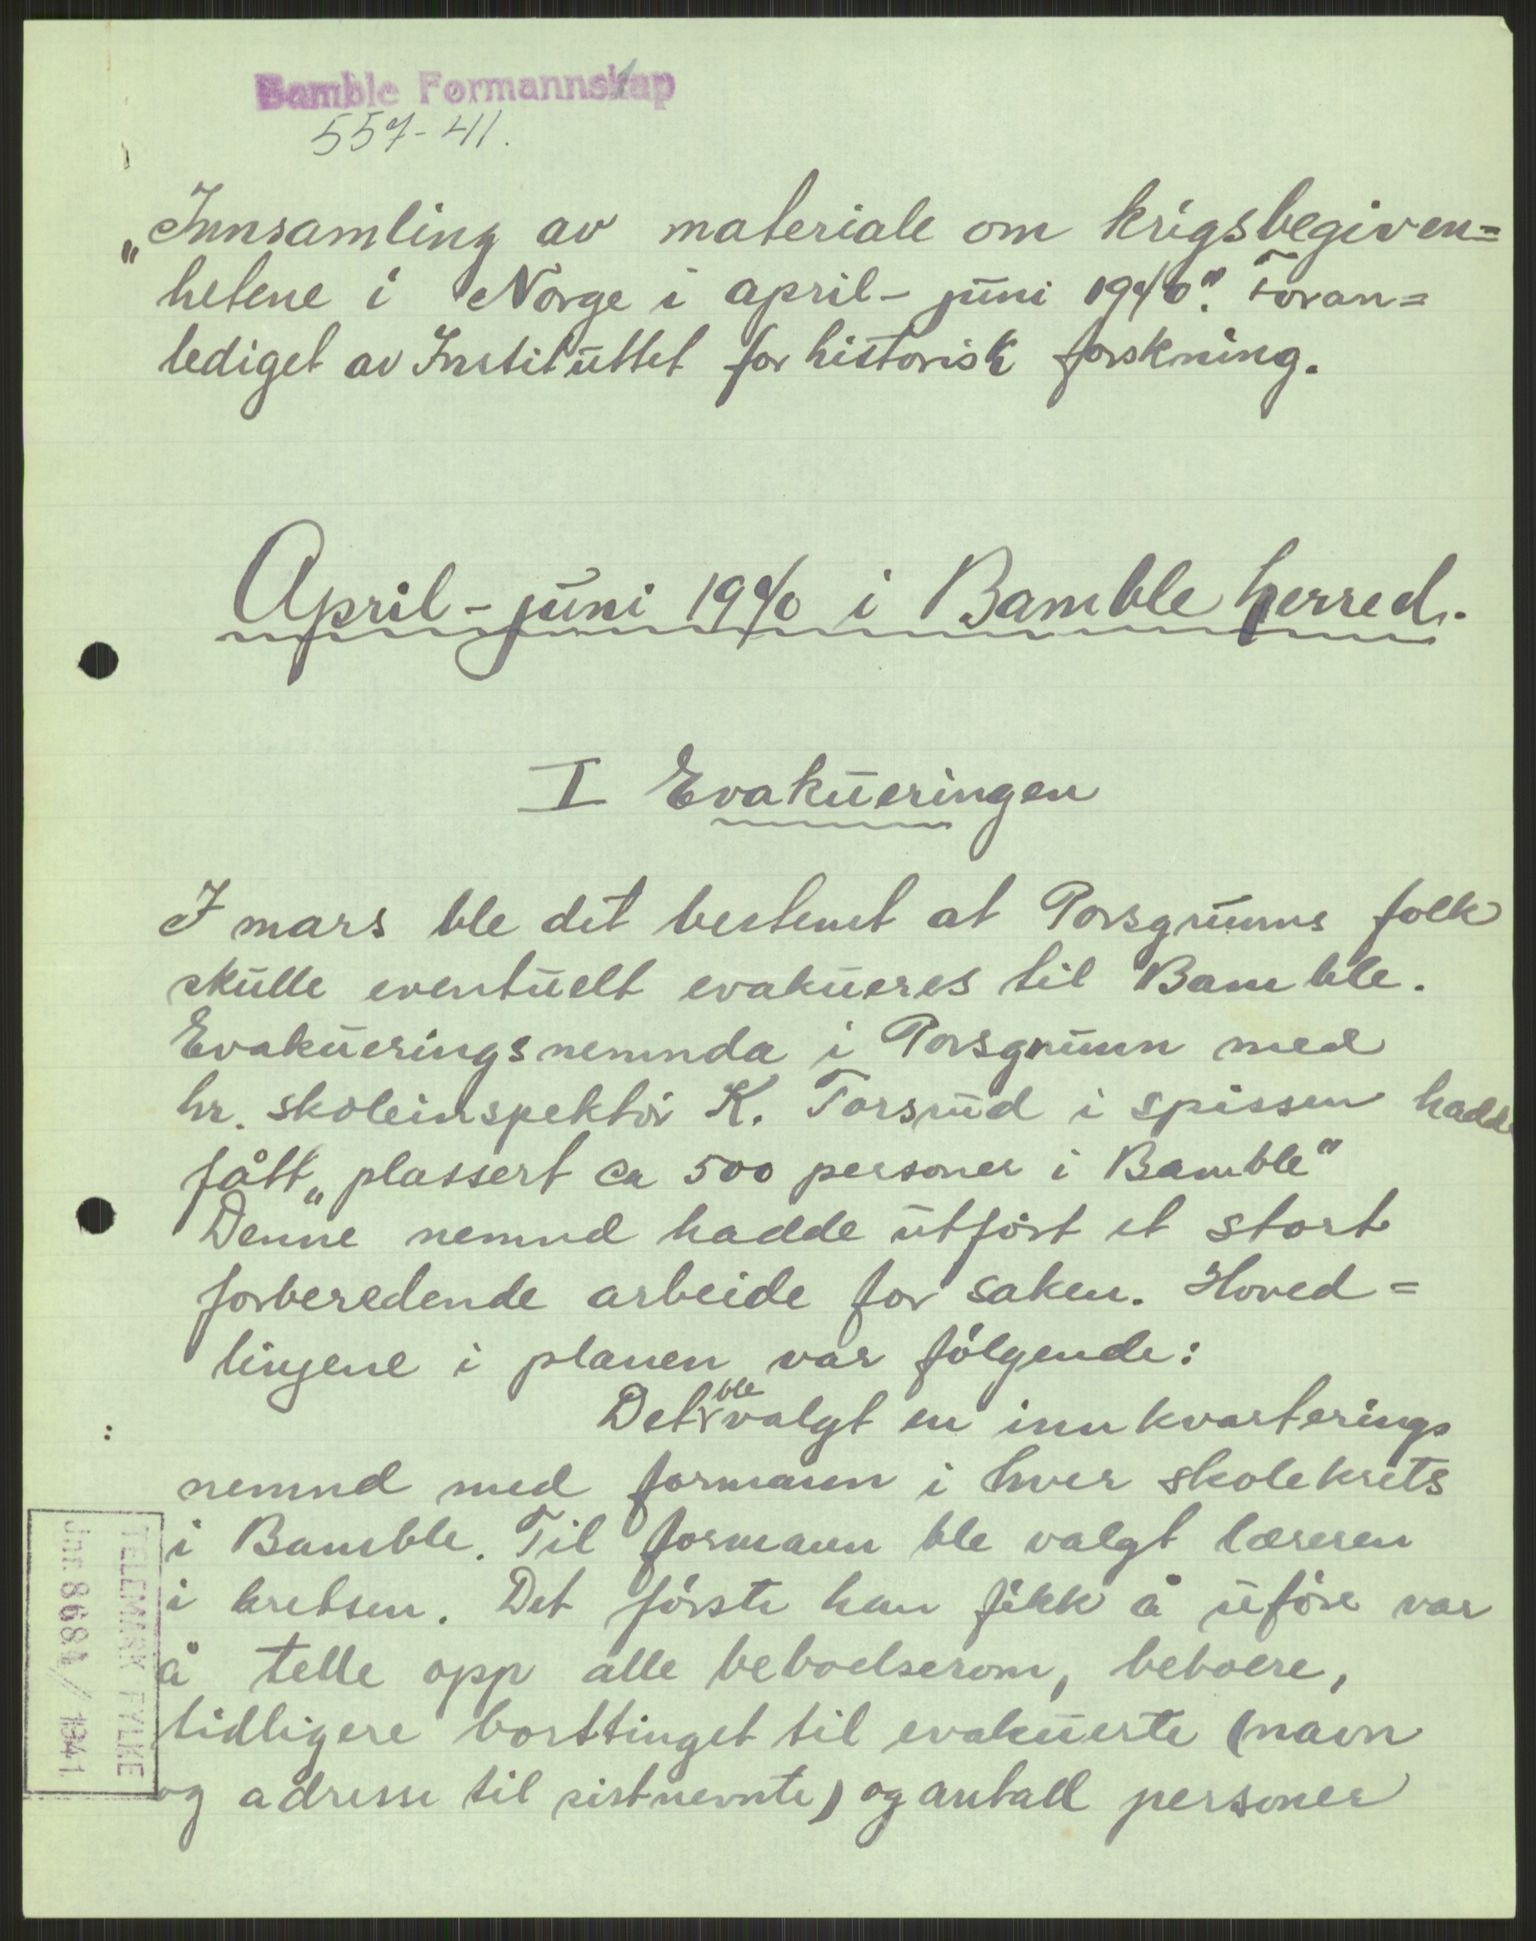 Bamble Formannskap
557-41.
„Innsamling av materiale om krigsbegiven=
hetene i Norge i april- juni 1940". Foran=
lediget av Instituttet for historisk forskning.
April-juni 1940 i Bamble herred.
I Evakueringen
I mars ble det bestemt at Porsgrunns folk
skulle eventuelt evakueres til Bamble.
Evakueringsnemnda i Porsgrunn med
hr. skoleinspektør K. Torsrud i spissen hadde
fått „plassert ca 500 personer i Bamble"
Denne nemnd hadde utført et stort
forberedende arbeide for saken. Hoved=
linjene i planen var følgende:
Det ble valgt en innkvarterings
nemnd med formann i hver skolekrets
i Bamble. Til formann ble valgt læreren
i kretsen. Det første han fikk å uføre var
å telle opp alle beboelserom, beboere,
tidligere borttinget til evakuerte (navn
og adresse til sistnevnte) og antall personer
TELEMARK FYLKE
Jnr. 8681 // 1941